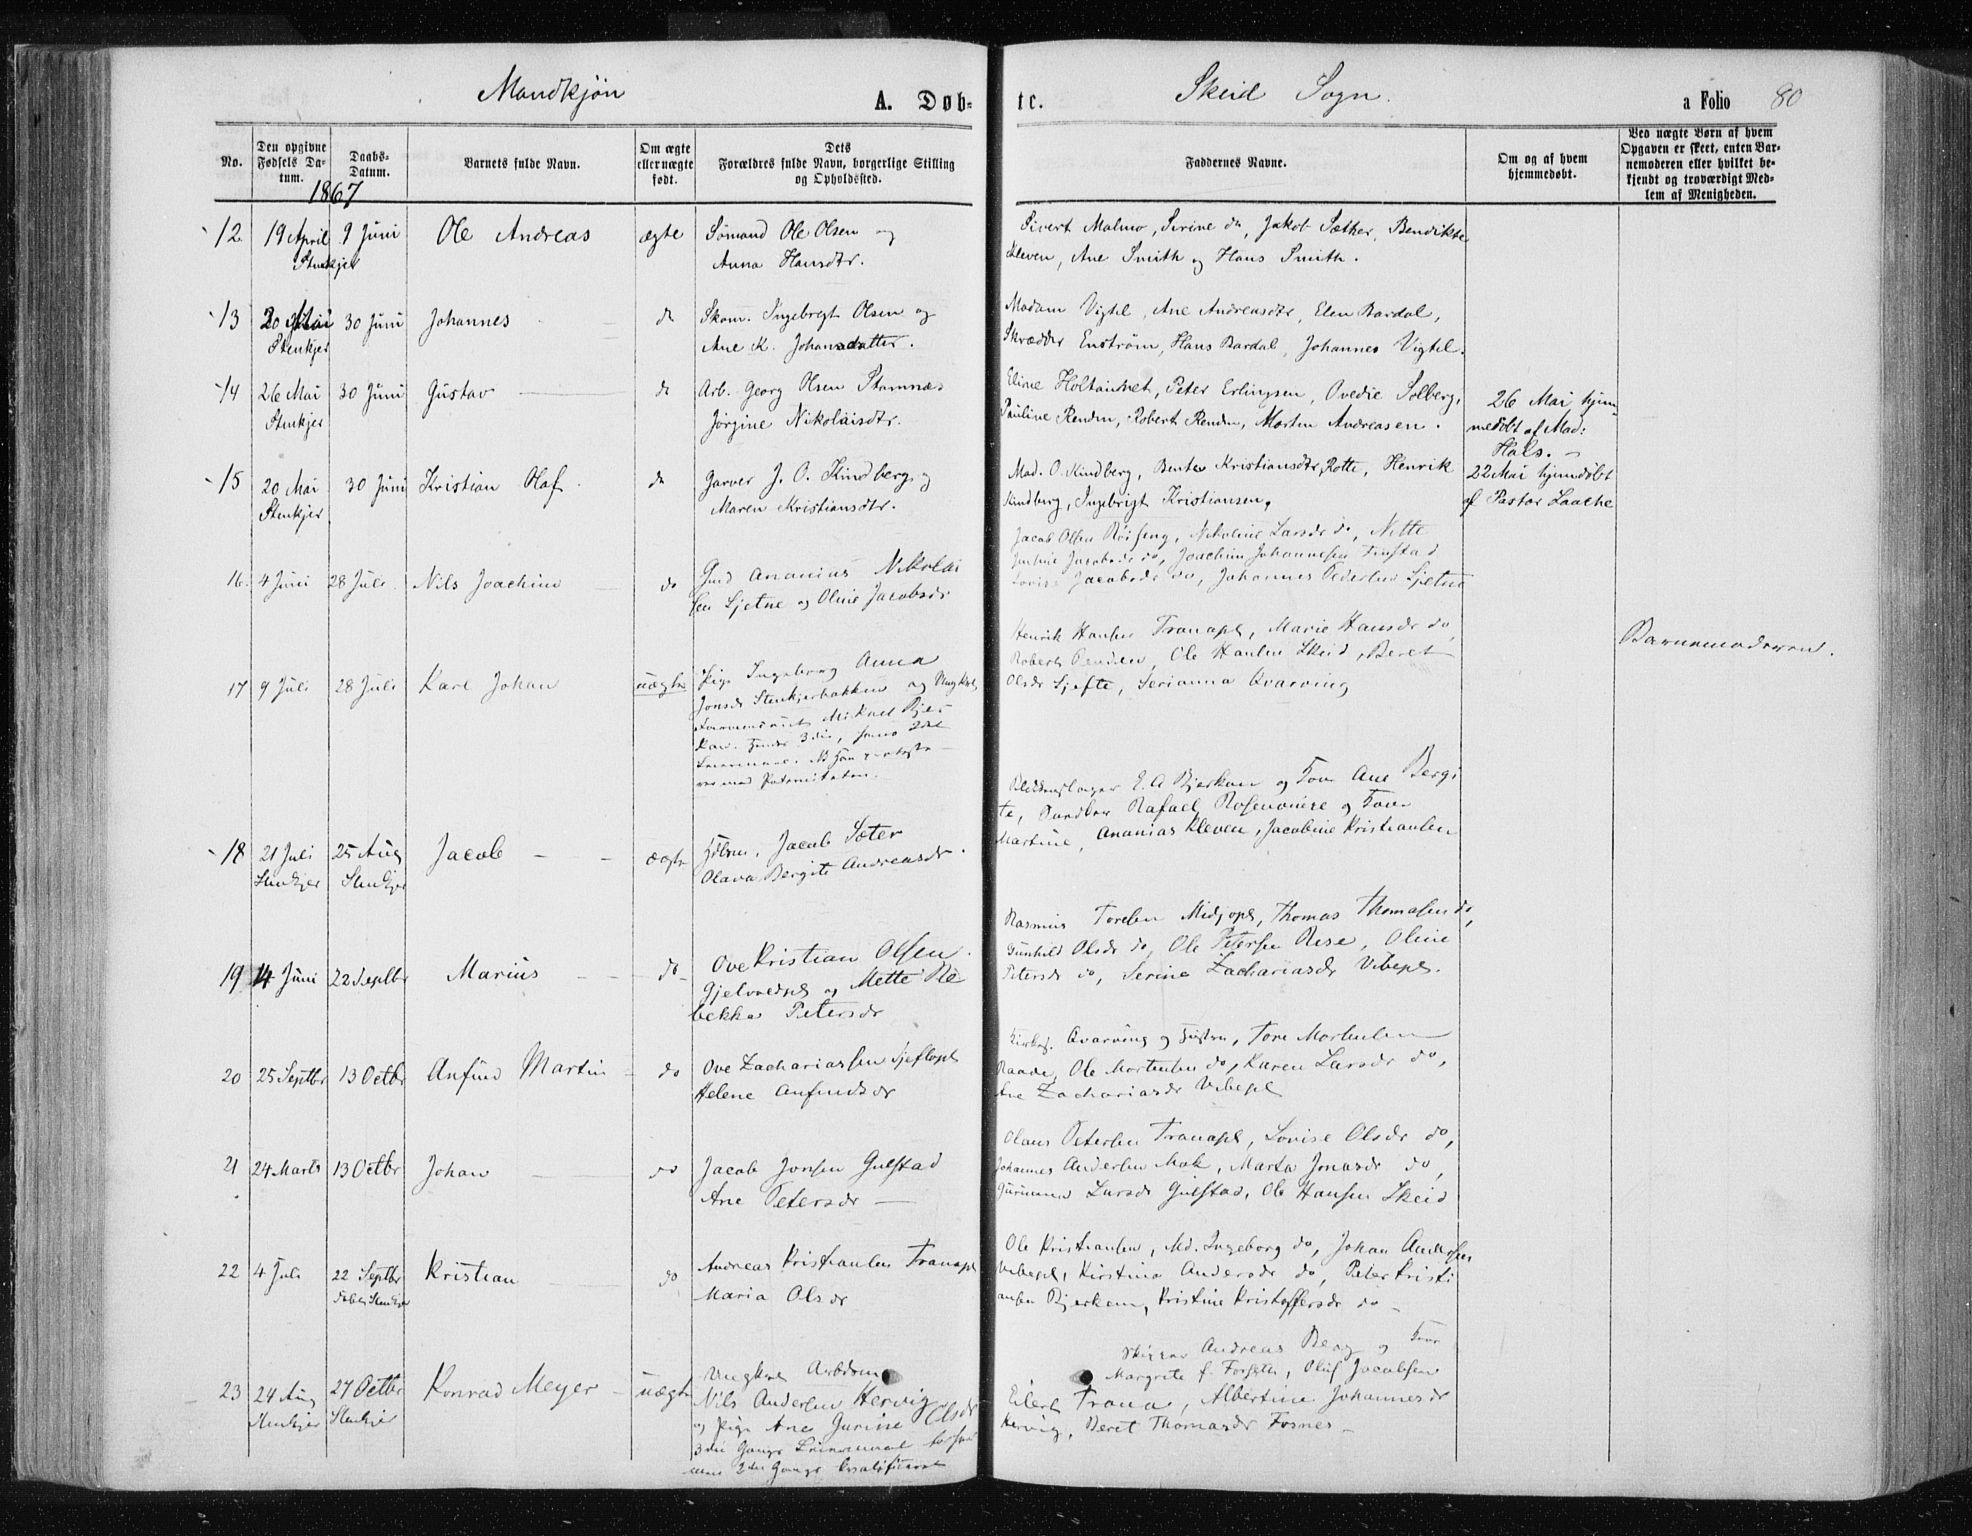 Mandkjøn
A. Døb-
te.
Skeid Sogn.
a Folio 80
No.
Den opgivne
Fødsels Da-
tum.
Daabs-
Datum.
Barnets fulde Navn.
Om ægte
eller uægte
født.
Dets
Forældres fulde Navn, borgerlige Stilling
og Opholdssted.
Faddernes Navne.
Om og af hvem
hjemmedøbt.
Ved uægte Børn af hvem
Opgaven er skeet, enten Bar-
nemoderen eller hvilket be-
kjendt og troværdigt Med-
lem af Menigheden.
1867
12 19 April 9 Juni Ole Andreas ægte Sømand Ole Olsen og
Stenkjer Anna Hansdtr.
Sivert Malmo, Serine do, Jakob Sæther, Bendikte
Kleven, Ane Smith og Hans Smith.
13 20 Mai 30 Juni Johannes do Skom. Ingebregt Olsen og
Stenkjer Ane K. Johansdatter.
Madam Vigtil, Ane Andreasdtr, Elen Bardal,
Skrædder Enstrøm, Hans Bardal, Johannes Vigtil.
14 26 Mai 30 Juni Gustav do Arb. Georg Olsen Stamnæs
Stenkjer Jørgine Nikolaisdtr.
Eline Holtanket, Peter Erlingsen, Ovedie Solberg,
Pauline Renden, Robert Renden, Morten Andreasen.
26 Mai hjem-
medøbt af Mad:
Hals.
15 20 Mai 30 Juni Kristian Olaf do Garver J. O. Kindberg og
Stenkjer Maren Kristiansdtr.
Mad. O. Kindberg, Bente Kristiansdtr, Rotte, Henrik
Kindberg, Ingebrigt Kristiansen,
22 Mai hjemdøbt
af Pastor Laache
16. 4 Juni 28 Juli. Nils Joachim do Gmd Ananius Nikolai
sen Sjetne og Oline Jacobsdr
Jacob Olsen Røiseng, Nikoline Larsdr do, Nette
Jacobsdr do, Joachim Johannesen Finstad
Lovise Jacobsdr do, Johannes Pedersen Sjetne
17 9 Juli 28 Juli Karl Johan uægte Pige Ingeborg Anna
Jonsdr Stenkjerbakken og Ungkarl
Mikael Bjer
kan. 3die, 2det
Leiermaal. NB Han
med Paterniteten.
Henrik Hansen Tranapl, Marie Hansdr do,
Robert Renden, Ole Hansen Skeid, Beret
Olsdr Sjefte, Serianna Qvarving
Barnemoderen.
18 21 Juli 25 Aug Jacob ægte Jacob Sæter
Stenkjer Stenkjer Olava Bergite Andreasdr.
E. A Bjerkan og Kone Ane Bergi
te, Rafael Rosenvinge og Kone
Martine, Ananias Kleven, Jacobine Kristiansen
19 4 Juni 22 Septbr Marius do Ove Kristian Olsen
Gjelvoldspl og Mette Re
bekka Petersdr
Rasmus Toresen Midjopl, Thomas Thomasen do,
Gunhild Olsdr do, Ole Petersen Rise, Oline
Petersdr do, Serine Zachariasdr Vibepl.
20 25 Septbr 13 Octbr Anfind Martin do Ove Zachariassen Sjeftepl
Helene Anfindsdr
Kirkes. Qvarving og Hustru, Tore Mortensen
Raade, Ole Mortensen do, Karen Larsdr do,
Ane Zachariasdr Vibepl
21 24 Marts 13 Octbr Johan do Jacob Jonsen Gulstad
Ane Petersdr
Olaus Petersen Tranapl, Lovise Olsdr do,
Johannes Andersen Mok, Marta Jonasdr do,
Gurianna Larsdr Gulstad, Ole Hansen Skeid
22 4 Juli 22 Septbr Kristian do Andreas Kristiansen Tranapl
døbt Stenkjer Maria Olsdr
Ole Kristiansen, Md. Ingeborg do, Johan Andersen
Vibepl, Kirstina Andersdr do, Peter Kristi
ansen Bjerkem, Kristine Kristoffersdr do
23 24 Aug 27 Octbr Konrad Meyer uægte Ungkarl Arbdsm
Stenkjer Stenkjer Nils Andersen Hervig
og Pige Ane Gurine Olsdr
3die Gangs Leiermaal
2den Gangs
Skipper Andreas Berg og Kone
Margrete f. Forseth, Oluf Jacobsen
Eilert Trana, Albertine Johannesdr
Hervig, Beret Thomasdr Fosnes